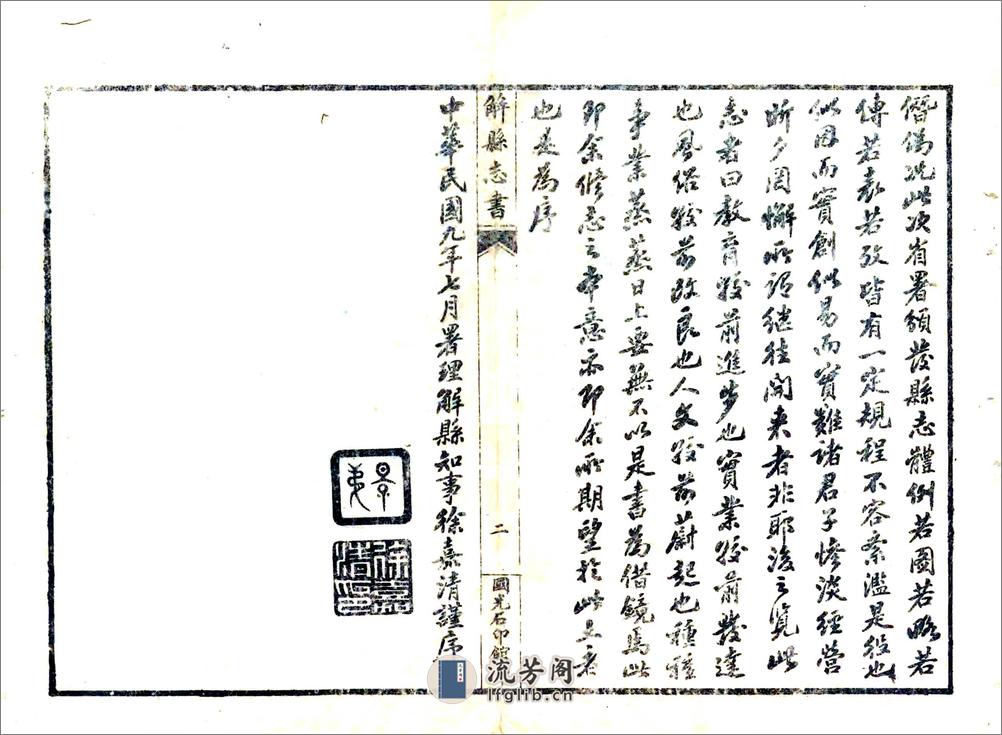 僭偽況此次省署頒發縣志體例若圖若略若
傳若表若攷皆有一定規程不容紊濫是役也
似因而實創似易而實難諸君子慘淡經營
昕夕罔懈所謂繼往開來者非耶後之覽此
志者曰教育較前進步也實業較前發達
也風俗較前改良也人文較前蔚起也種種
事業蒸蒸日上要無不以是書為借鏡焉此
即余修志之本意亦即余所期望於此志者
也是為序
解縣志書
二
國光石印館
中華民國九年七月署理解縣知事徐嘉清謹序
徐嘉
清印
流芳阁
lfglib.cn